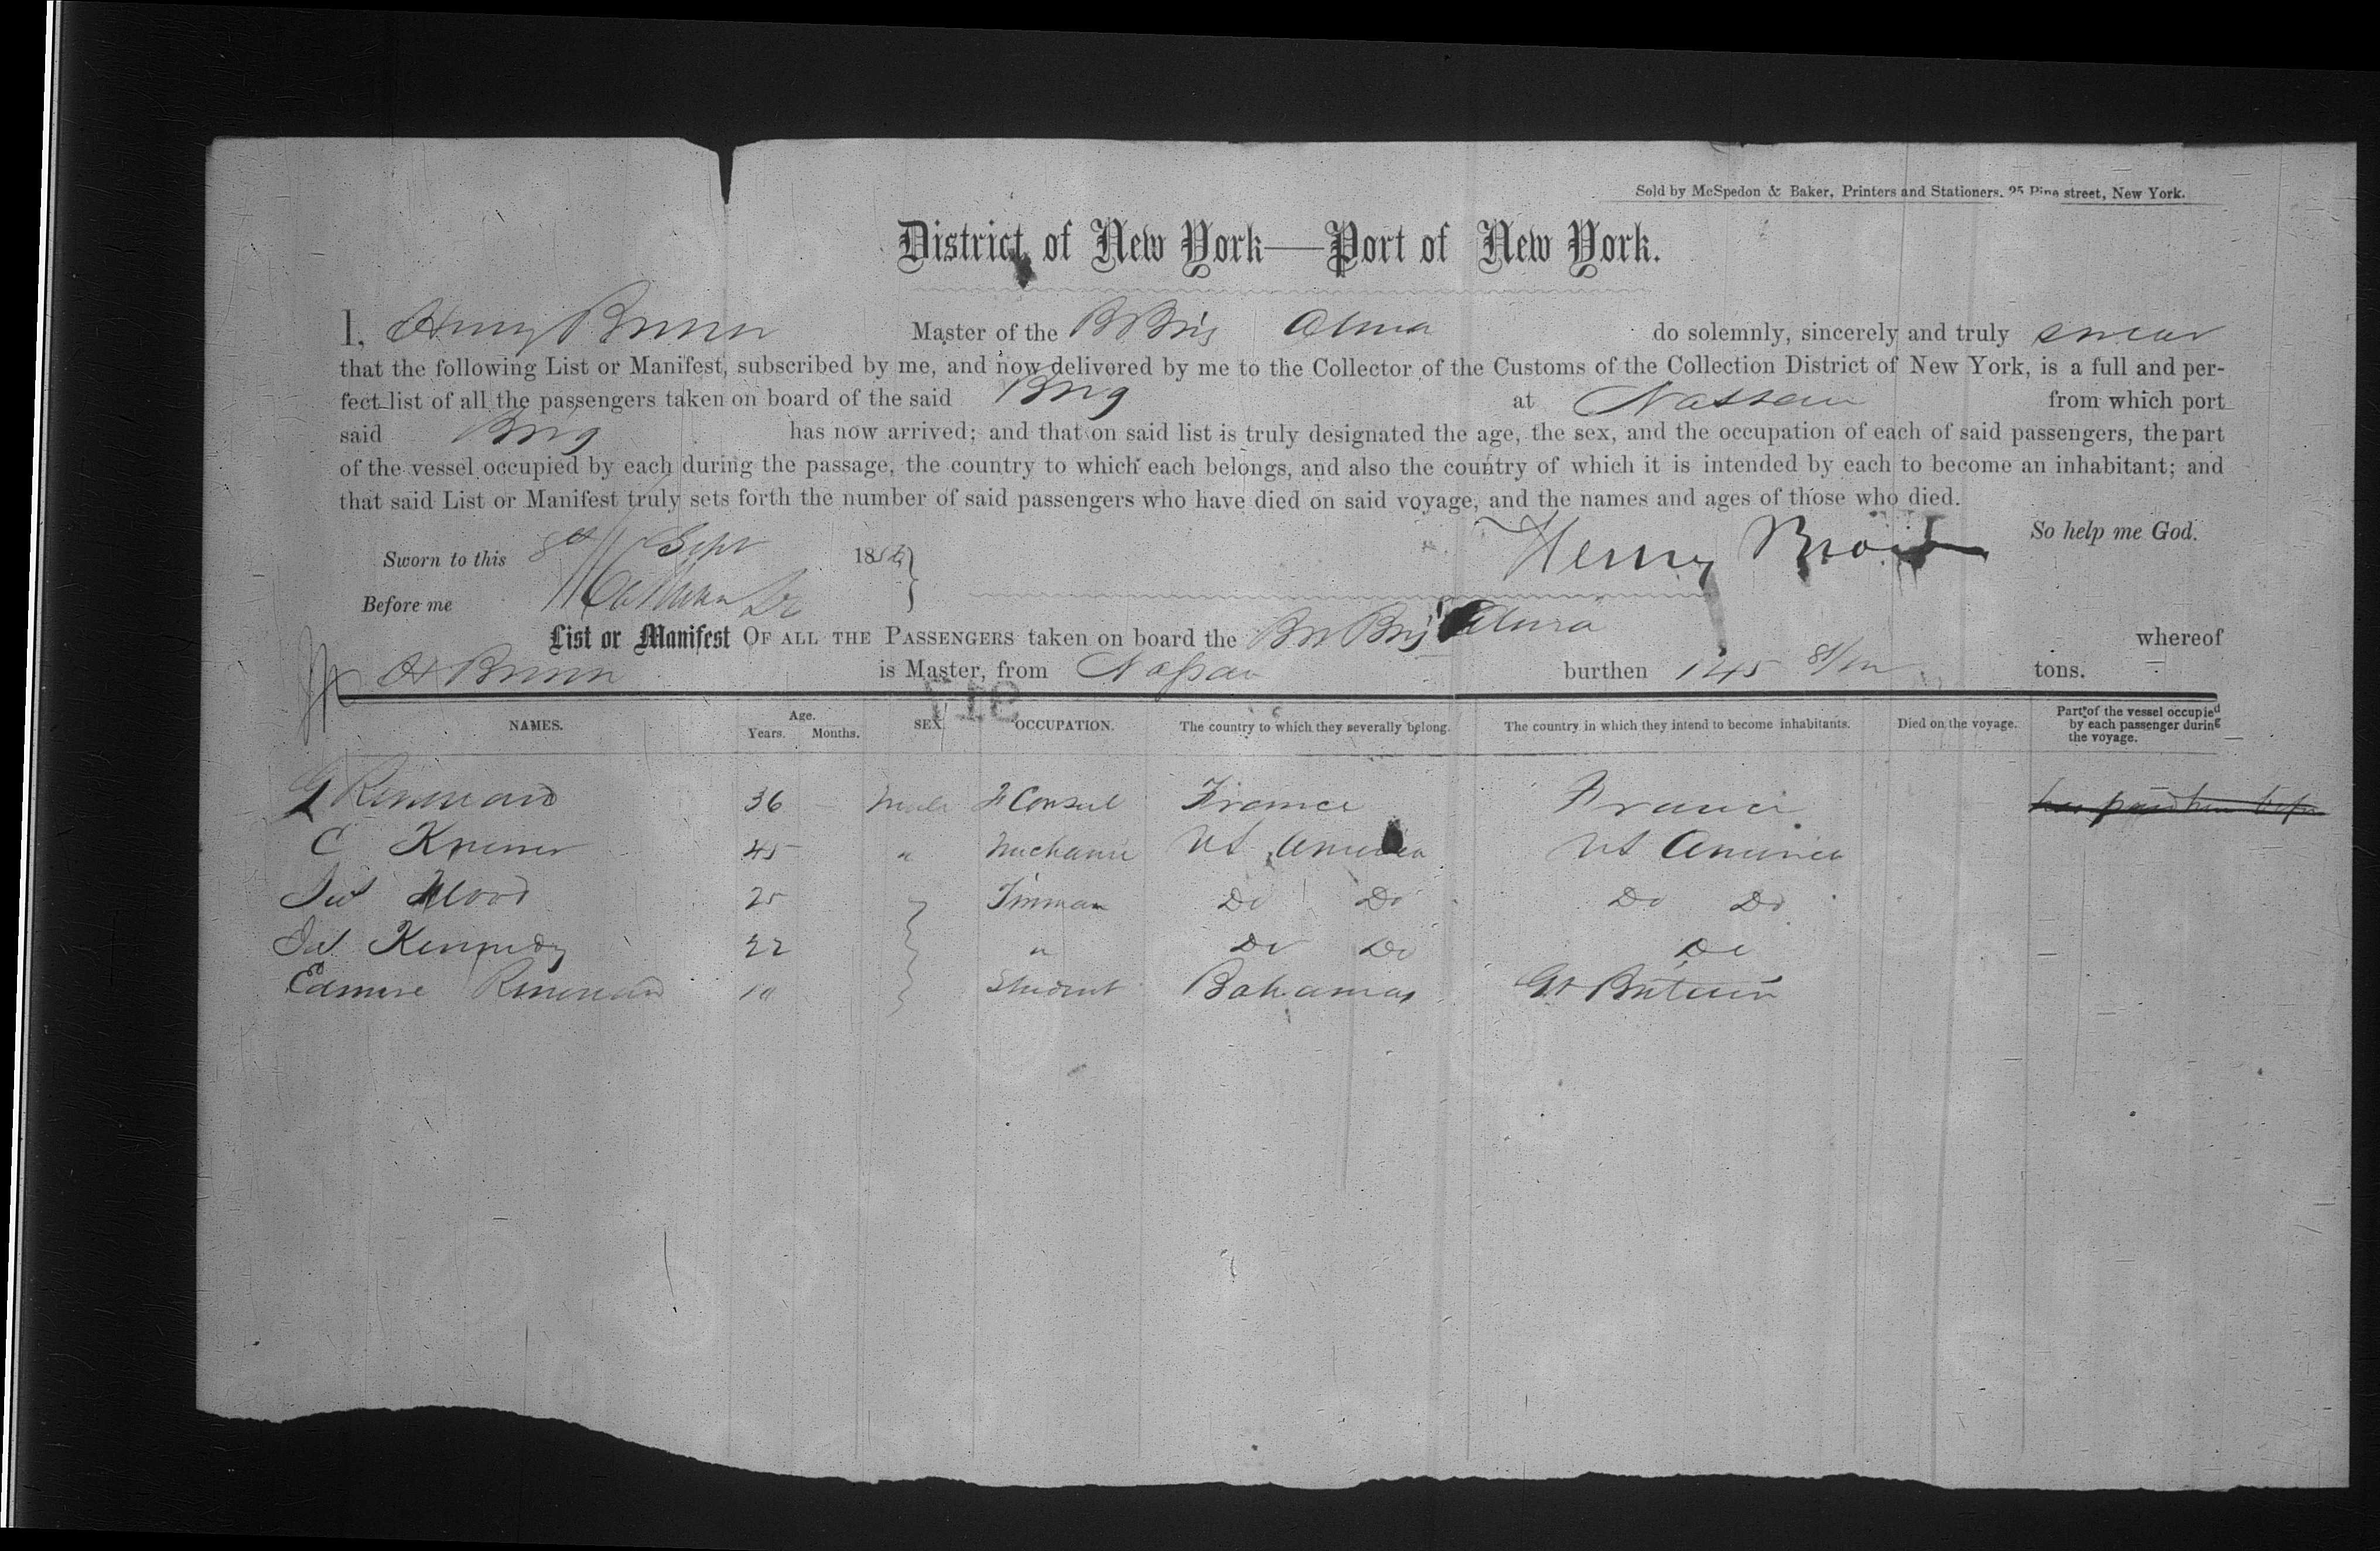 Sold by McSpedon & Baker, Printers and Stationers. 25 Pine street, New York.
District of New York—Port of New York.
I, Henry Brown Master of the B Brig Alma do solemnly, sincerely and truly swear
that the following List or Manifest, subscribed by me, and now delivered by me to the Collector of the Customs of the Collection District of New York, is a full and per-
fect list of all the passengers taken on board of the said Brig at Nassau from which port
said Brig has now arrived; and that on said list is truly designated the age, the sex, and the occupation of each of said passengers, the part
of the vessel occupied by each during the passage, the country to which each belongs, and also the country of which it is intended by each to become an inhabitant; and
that said List or Manifest truly sets forth the number of said passengers who have died on said voyage, and the names and ages of those who died.
So help me God.
Sworn to this 8th Sept 185
Henry Brown
Before me
List or Manifest OF ALL THE PASSENGERS taken on board the Br Brig Alma whereof
H Brown is Master, from Nassau burthen 145 tons.
NAMES. Age. Years. Months. SEX. OCCUPATION. The country to which they severally belong. The country in which they intend to become inhabitants. Died on the voyage. Part of the vessel occupied by each passenger during the voyage.
G 36 Male F Consul France France
C 45 " Mechanic US America US America
Wood 25 Tinman Do Do Do Do
Jas Kennedy 22 " Do Do Do
10 Student Bahamas Gt Britain